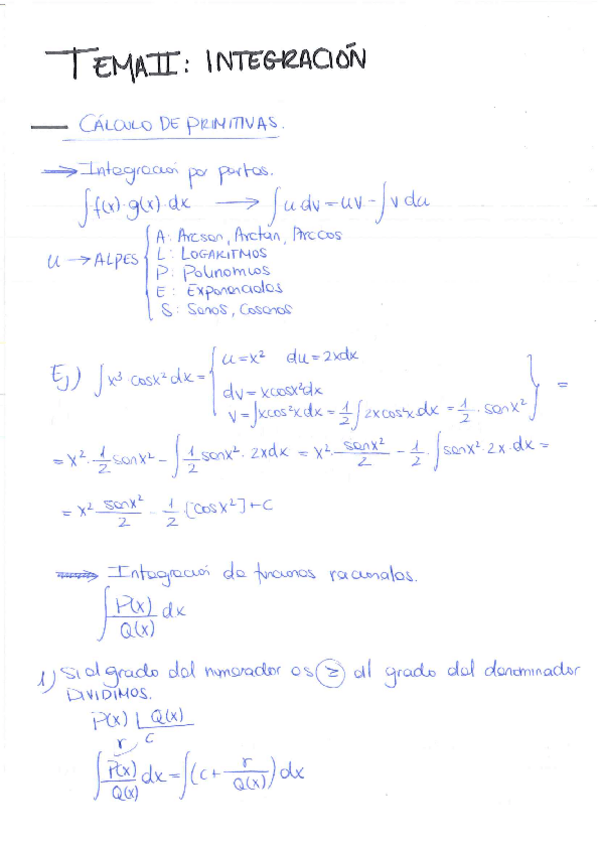 TEMA II: INTEGRACIÓN
CÁLCULO DE PRIMITIVAS.
→ Integración por partes.
∫f(x)·g(x)·dx → ∫u dv = uv - ∫v du
u → ALPES { A: Arcsen, Arctan, Arccos
L: LOGARITMOS
P: Polinomios
E: Exponenciales
S: Senos, Cosenos
Ej) ∫x³·cosx²dx = { u=x² du=2xdx
dv=xcosx²dx
v=∫xcos²xdx = 1/2∫2xcos²xdx = 1/2·senx² } =
= x²·1/2senx² - ∫1/2senx²·2xdx = x²·senx²/2 - 1/2·∫senx²·2x·dx =
= x² senx²/2 - 1/2·[cosx²]+C
→ Integración de funciones racionales.
∫P(x)/Q(x) dx
1) Si el grado del numerador es ≥ al grado del denominador
DIVIDIMOS.
P(x) | Q(x)
r c
∫P(x)/Q(x) dx = ∫(c + r/Q(x)) dx